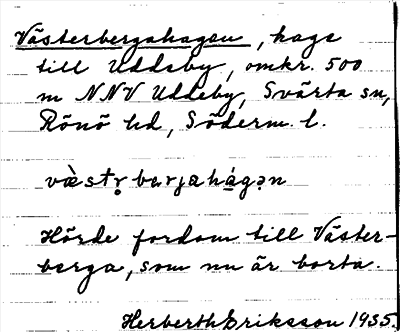 Västerbergahagen, hage
till Uddeby, omkr. 500
m NNV Uddeby, Svärta sn,
Rönö hd, Söderm. l.
væ̀str̥bærjahá̠gən
Hörde fordom till Väster-
berga, som nu är borta.
Herberth Eriksson 1935.